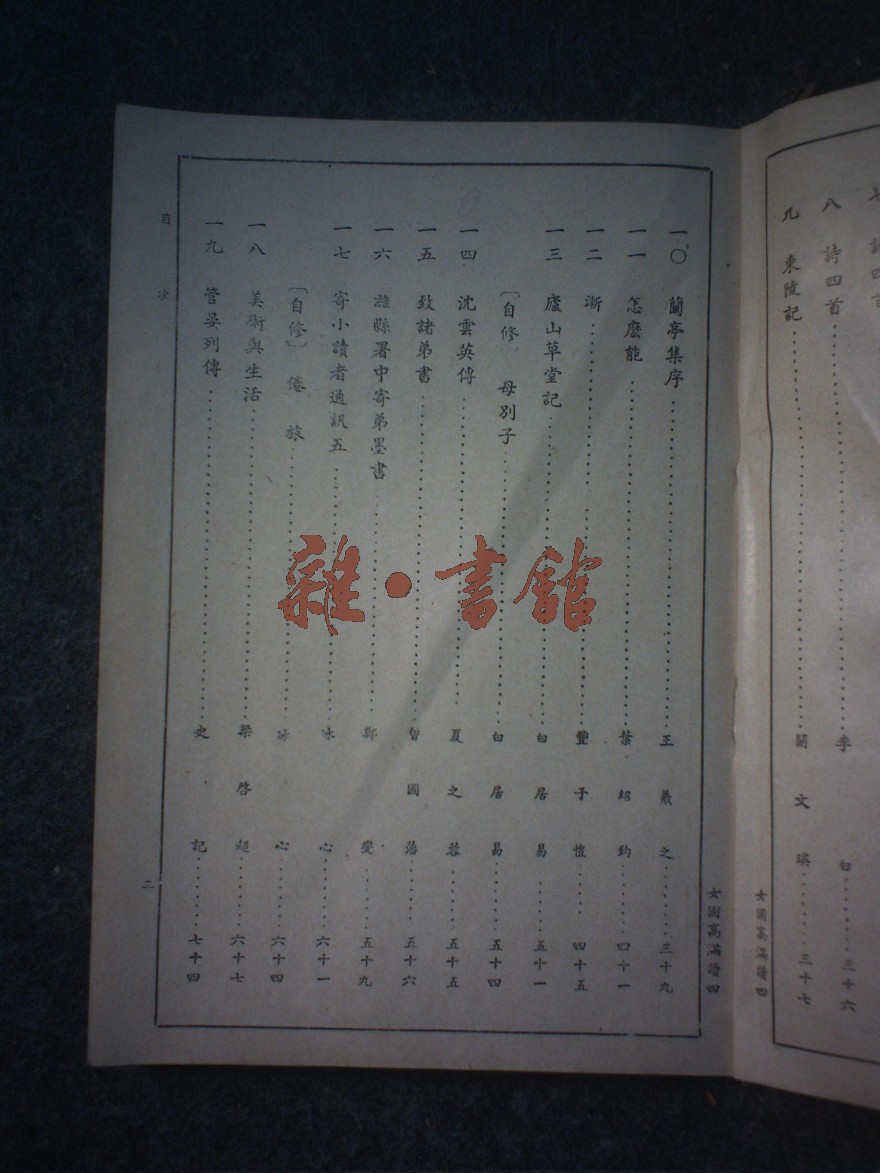 八 詩四首 李 白 三十六
九 東陵記 關文瑛 三十七
女國高滿讀四
女國高滿讀四
一〇 蘭亭集序 王羲之 三十九
一一 怎麽能 葉紹鈞 四十一
一二 漸 豐子愷 四十五
一三 廬山草堂記 白居易 五十一
〔自修〕 母別子 白居易 五十四
一四 沈雲英傳 夏之蓉 五十五
一五 致諸弟書 曾國藩 五十六
一六 濰縣署中寄弟墨書 鄭 燮 五十九
一七 寄小讀者通訊五 冰 心 六十一
〔自修〕 倦 旅 冰 心 六十四
一八 美術與生活 梁啓超 六十七
一九 管晏列傳 史 記 七十四
目 次
二
雜·書館